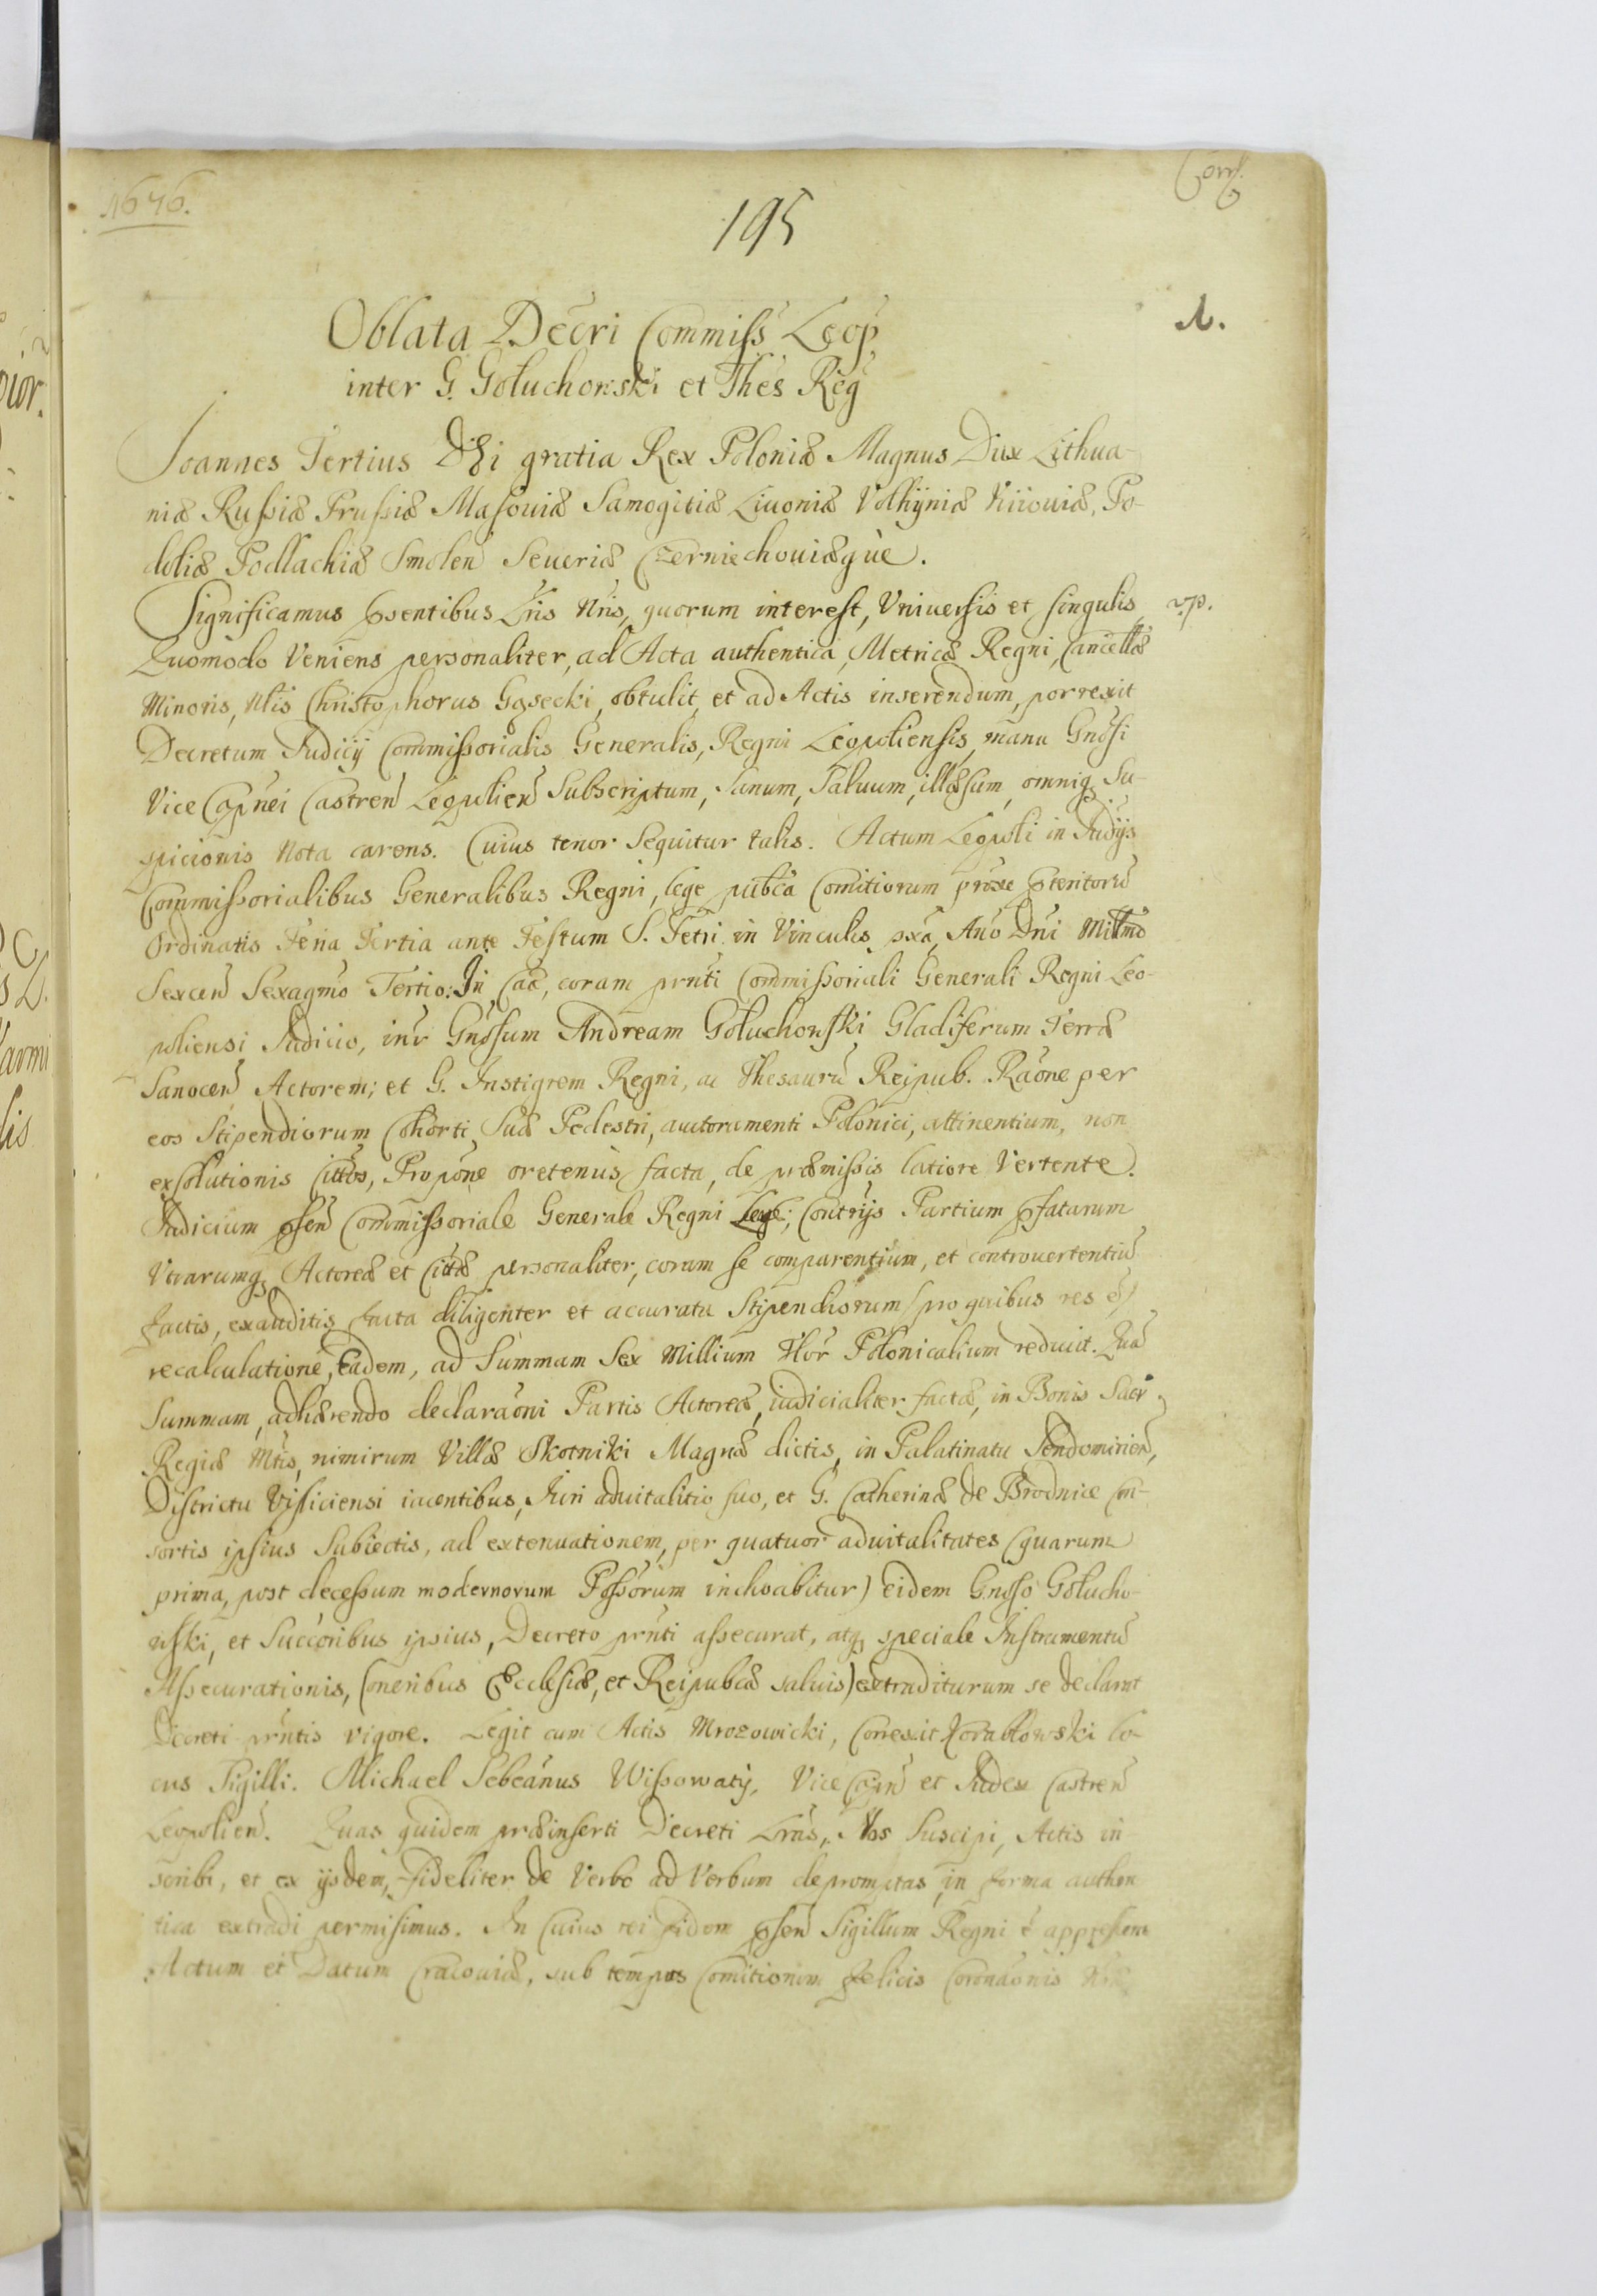 1676.
195
Corr.
1.
Oblata Decri Commiss Leop
inter G. Gołuchowski et Thes Reg
Joannes Tertius Dei gratia Rex Poloniæ Magnus Dux Lithua-
niæ Russiæ Prussiæ Masoviæ Samogitiæ Livoniæ Volhyniæ Kijoviæ, Po-
doliæ Podlachiæ Smolen Severiæ Czerniechoviæque.
Significamus præsentibus Lris Nris, quorum interest, Universis et singulis
Quomodo Veniens personaliter, ad Acta authentica, Metricæ Regni, Cancellæ
Minoris, Nlis Christophorus Gąsecki, obtulit, et ad Actis inserendum, porrexit
Decretum Judicij Commissorialis Generalis, Regni Leopoliensis, manu Gnosi
Vice Capnei Castren Leopolien Subscriptum, Sanum, Salvum, illæsum, omniq Su-
spicionis Nota carens. Cuius tenor Sequitur talis. Actum Leopoli in Judijs
Commissorialibus Generalibus Regni, lege publca Comitiorum proxe præteritorū
Ordinatis Feria Tertia ante Festum S. Petri in Vinculis pxa, Ano Dni Millmo
Sexcen Sexagmo Tertio: In Caa, coram prnti Commissoriali Generali Regni Leo-
poliensi Judicio, intr Gnosum Andream Gołuchowski Gladiferum Terræ
Sanocen Actorem; et G. Instigrem Regni, ac Thesaurū Reipub. Raone per
eos Stipendiorum Cohorti Suæ Pedestri, auctoramenti Polonici, attinentium, non
exsolutionis Cittos, Propone oretenus facta, de præmissis latiore Vertente.
Judicium præsen Commissoriale Generale Regni Leopo; Contrijs Partium præfatarum
Utrarumq Actoreæ et Cittæ personaliter, coram se comparentium, et controvertentiū
factis, exauditis facta diligenter et accurata Stipendiorum (pro quibus res e)
recalculatione, Eadem, ad Summam Sex Millium Flor Polonicalium reduxit. Quā
Summam, adhærendo declaraoni Partis Actoreæ, iudicialiter factæ, in Bonis Sacr
Regiæ Mtis, nimirum Villæ Skotniki Magnæ dictis, in Palatinatu Sendomirien,
Districtu Visliciensi iacentibus, Juri advitalitio suo, et G. Catherinæ de Brodnice Con-
sortis ipsius Subiectis, ad extenuationem, per quatuor advitalitates (quarum
prima, post decessum modernorum Possorum inchoabitur) eidem Gnoso Gołucho-
wski, et Succoribus ipsius, Decreto prnti assecurat, atq speciale Instrumentū
Assecurationis, (oneribus Ecclesiæ, et Reipublcæ salvis) extraditurum se declarat
Decreti prntis vigore. Legit cum Actis Mrozowicki, Correxit Korabłowski lo-
cus Sigilli. Michael Sebeanus Wissowaty, Vice Capn et Judex Castren
Leopolien. Quas quidem præinserti Decreti Lras, Nos Suscipi, Actis in
scribi, et ex ijsdem, fideliter de Verbo ad Verbum depromptas in forma authen
tica extradi permisimus. In Cuius rei fidem præsen Sigillum Regni e appressum
Actum et Datum Cracoviæ, sub tempus Comitiorum felicis Coronaonis Nræ